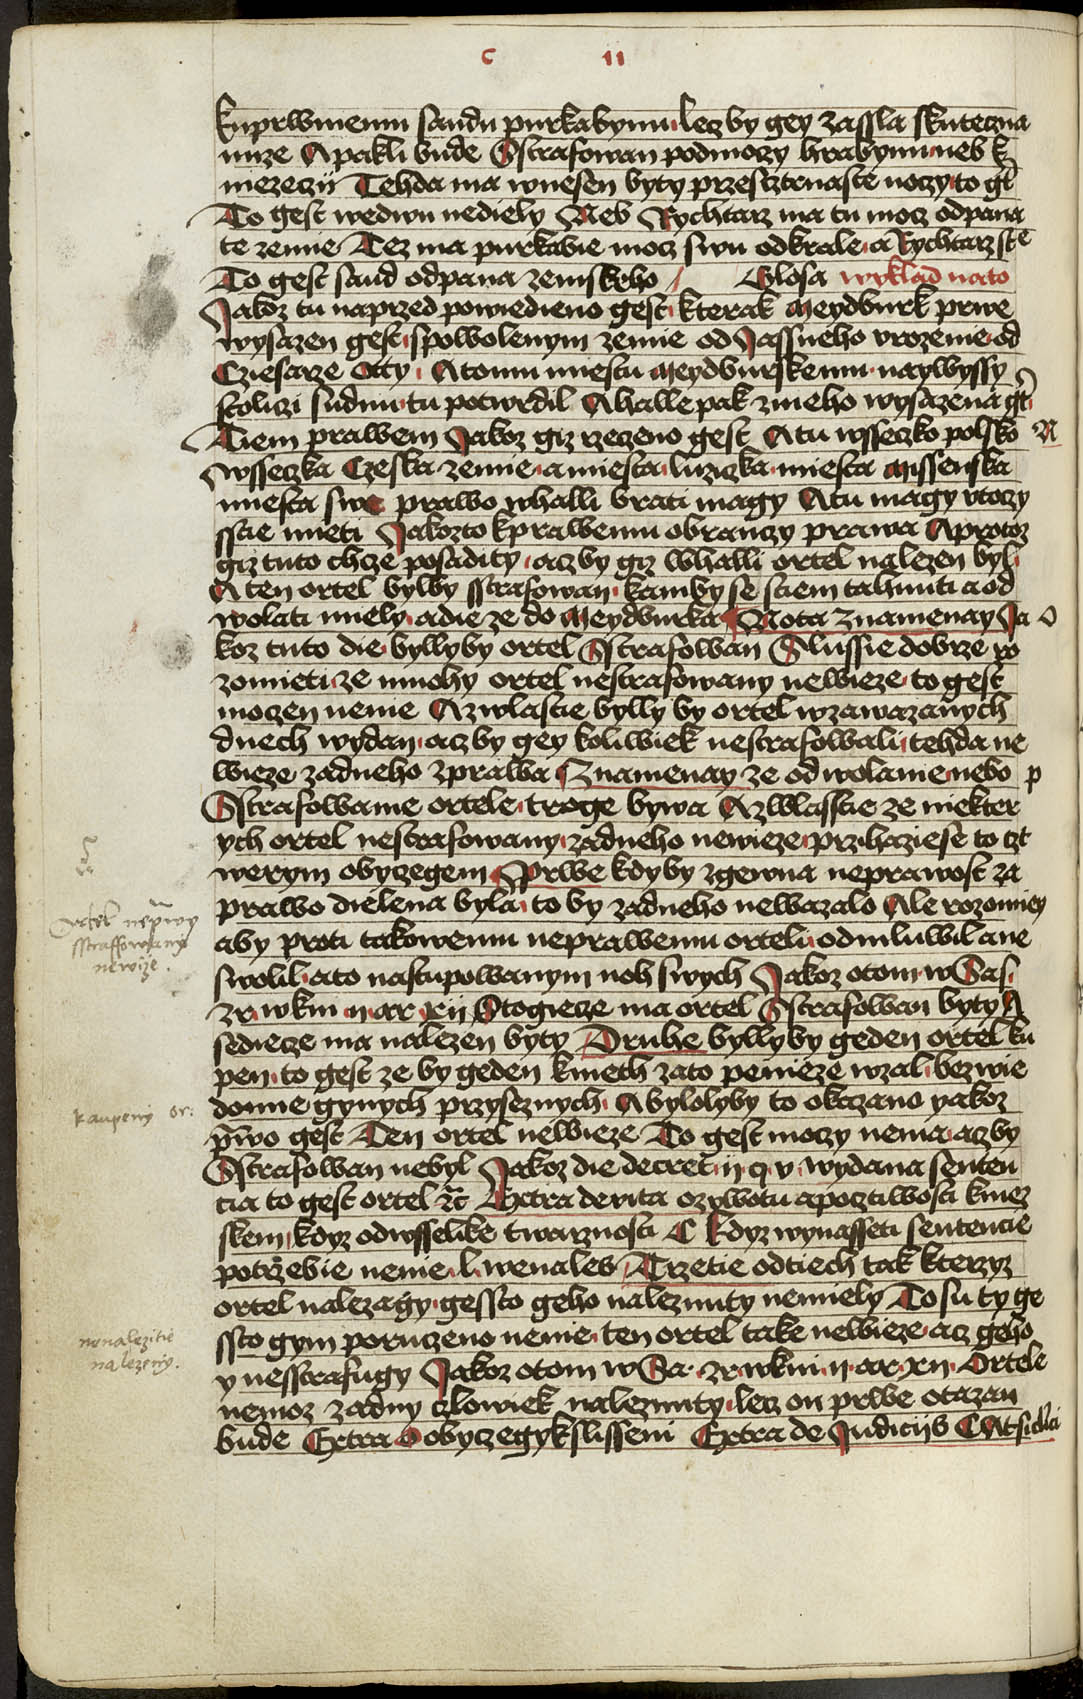 c ıı
kuprwniemu saudu purkabynu · lecz by gey zassla skuteczna
nuze Apakli bude Sstrafowan podmoczy hrabynu · neb k
niezeczij Tehda ma wnesen byty przes cztrnaste noczy · to gt
To gest wedwu nediely Neb Rychtarz ma tu mocz odpana
te zemie · Tez ma purkabie mocz swu odkrale · a Rychtarz ste
To gest saud odpana zemskeho / Glosa wyklad nato
Jakoz tu naprzed powiedieno gest · kterak Meydburk prwe
wysazen gest · spowolenym zemie od Jassneho urozenie · od
Cziesarze Otty · Atomu miestu Meydburskemu · naywyssy
stoliczi sudnu · tu potwrdil Ahalle pak zneho wysazena gt
Tiem prawem Jakoz giz rzeczeno gest Atu wsseczko polsko
wsseczka Czeska zemie · a miesta · luziczka · miesta Missenska
miesta swe prawo whalli brati magy Atu magy utoczy
sstie mieti Jakozto kprawemu obranczy prawa Aprotoz
giz tuto chcze posaditi · acz by giz whalli ortel nalezen byl ·
A ten ortel bylby sstrafowan · kamby se stiem tahnuti a od
wolati miely · adie ze do Meydburka Nota Znamenay Ja
koz tuto die · byllyby ortel Sstrafowan Slussie dobrze ro
zomieti · ze mnohy ortel nestrafowany newieze · to gest
moczen nenie Azwlastie bylly by ortel wzawazanych
dnech wydan · acz by gey koliwiek nestrafowali · tehda ne
wieze zadneho zprawa Znamenay ze odwolanie · nebo
Sstrafowanie ortele · troge bywa Azwlasstie ze niekter
ych ortel nestrafowany · zadneho newieze · przihaziese to czt
werym obyczegem Prwe kdyby zgewna neprawost za
prawo dielena byla · to by zadneho newazalo Ale rozomiey
aby proti takowemu neprawemu ortelu · odmluwil a ne
swolil · a to nastupowanym noh swych Jakoz otom · w Sas ·
zr · wkni · ıı · ar · xıı Stogiecze ma ortel Sstrafowan byty A
sediecze ma nalezen byty Druhe bylly by geden ortel ku
pen · to gest ze by geden kmeth zato penieze wzal · bezwie
domie gynych przyseznych · A byloly by to okazano yakoz
prwo gest Ten ortel newieze · To gest moczy nema · acz by
Sstrafowan nebyl Jakoz die decret · ıı · q · v · wydana senten
cia to gest ortel rc Extra de vita ozywotu a pocztiwosti knez
skem · kdyz odwsselike twarznosti C kdyz wynasseti sentencie
potrzebie nenie · l · wenales Trzetie odtiech tak kterzyz
ortel nalezagy · gessto geho naleznuty nemiely To su ty ge
ssto gym poruczeno nenie · ten ortel take newieze · acz geho
y nesstrafugy Jakoz otom w Sa · zr · wkni · ıı · ar · xıı · Ortele
nemoz zadny czlowiek naleznuty · lecz on prwe otazan
bude Extra O obyczegykslisseni Extra de Judicijs C At si clici
N
O
p
Ortel neprawy
sstraffowany
newize .
kaupeny or:
nenalezitie
nalezeny.